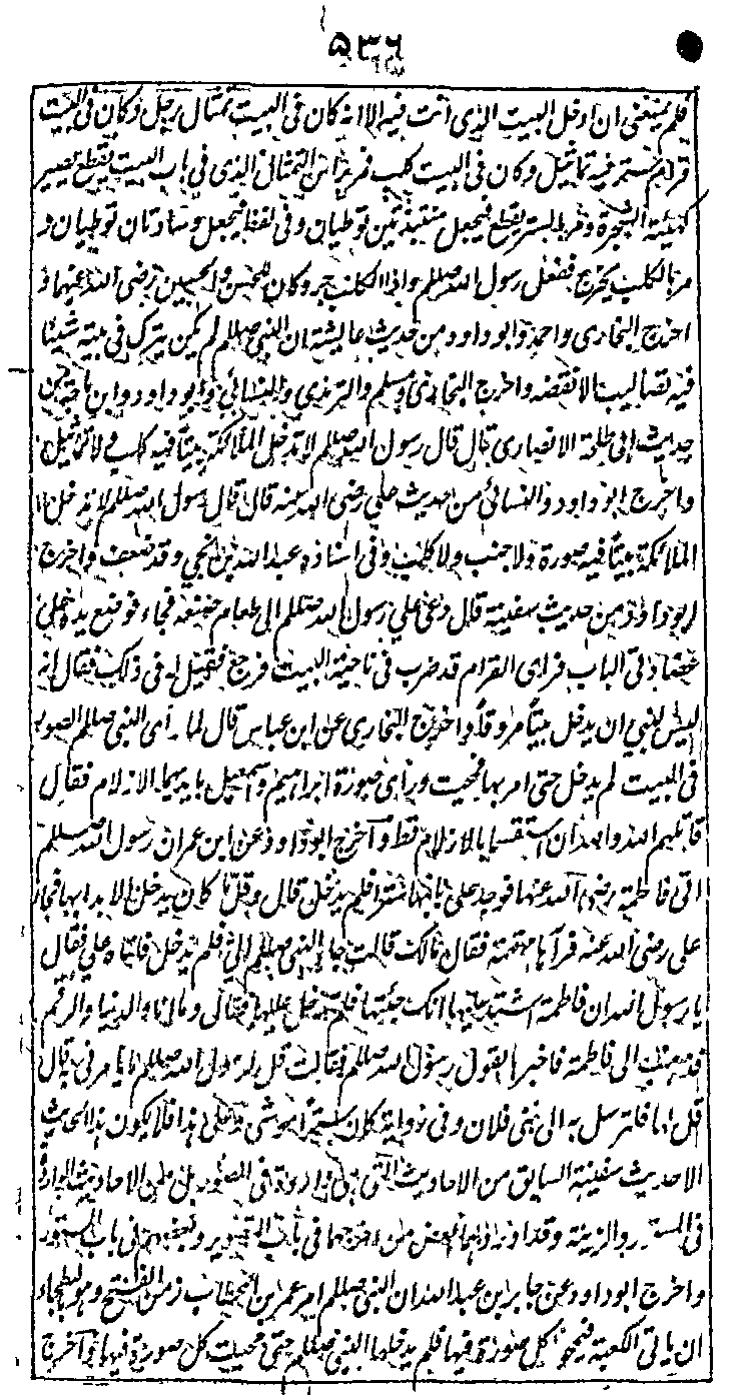 ٥٣٦
فلم يمنعنى ان ادخل البيت الذى انت فيه الا انه كان فى البيت تمثال رجل وكان فى البيت
قرام ستر فيه تماثيل وكان فى البيت كلب فمر براس التمثال الذى فى باب البيت يقطع يصير
كهيئة الشجرة ومر بالستر يقطع فيجعل منتبذتين توطيان وفى لفظ فيجعل وسادتان توطيان و
مر بالكلب يخرج ففعل رسول الله صللم واذا الكلب جرو كان للحسن والحسين رضى الله عنهما و
اخرج البخارى واحمد وابو داود من حديث عايشة ان النبى صللم لم يكن يترك فى بيته شيئا
فيه تصاليب الا نقضه واخرج البخارى ومسلم والترمذى والنسائى وابو داود وابن ماجة من
حديث ابى طلحة الانصارى قال قال رسول الله صللم لا تدخل الملائكة بيتا فيه كلب ولا تماثيل
واخرج ابو داود والنسائى من حديث على رضى الله عنه قال قال رسول الله صللم لا تدخل
الملائكة بيتا فيه صورة ولا جنب ولا كلب وفى اسناده عبد الله بن نجى وقد ضعف واخرج
ابو داود من حديث سفينة قال دعى على رسول الله صللم الى طعام صنعه فجاء فوضع يده على
عضادتى الباب فراى القرام قد ضرب فى ناحية البيت فرجع فقيل له فى ذلك فقال انه
ليس لنبى ان يدخل بيتا مزوقا واخرج البخارى عن ابن عباس قال لما رأى النبى صللم الصور
فى البيت لم يدخل حتى امر بها فمحيت ورأى صورة ابراهيم واسمعيل بايديهما الازلام فقال
قاتلهم الله والله ان استقسما بالازلام قط وآخرج ابو داود عن ابن عمر ان رسول الله صللم
اتى فاطمة رضى الله عنها فوجد على بابها سترا فلم يدخل قال وقل ما كان يدخل الا بدا بها فجاء
على رضى الله عنه فرآها مهتمة فقال مالك قالت جاء النبى صللم الىّ فلم يدخل فاتاه على فقال
يا رسول الله ان فاطمة اشتد عليها انك جئتها فلم تدخل عليها فقال وما انا والدنيا والرقم
فذهب الى فاطمة فاخبرها بقول رسول الله صللم فقالت قل لرسول الله صللم ما يامرنى به قال
قل لها فلترسل به الى بنى فلان وفى رواية كان سترا موشى وعلى هذا فلا يكون هذا الحديث
الا حديث سفينة السابق من الاحاديث التى هى واردة فى الصور بل من الاحاديث الواردة
فى الستور والزينة وقد اوردهما بعض من اخرجها فى باب التصوير وبعضهم فى باب الستور
واخرج ابو داود عن جابر بن عبد الله ان النبى صللم امر عمر بن الخطاب زمن الفتح وهو بالبطحاء
ان ياتى الكعبة فيمحو كل صورة فيها فلم يدخلها النبى صللم حتى محيت كل صورة فيها وآخرج